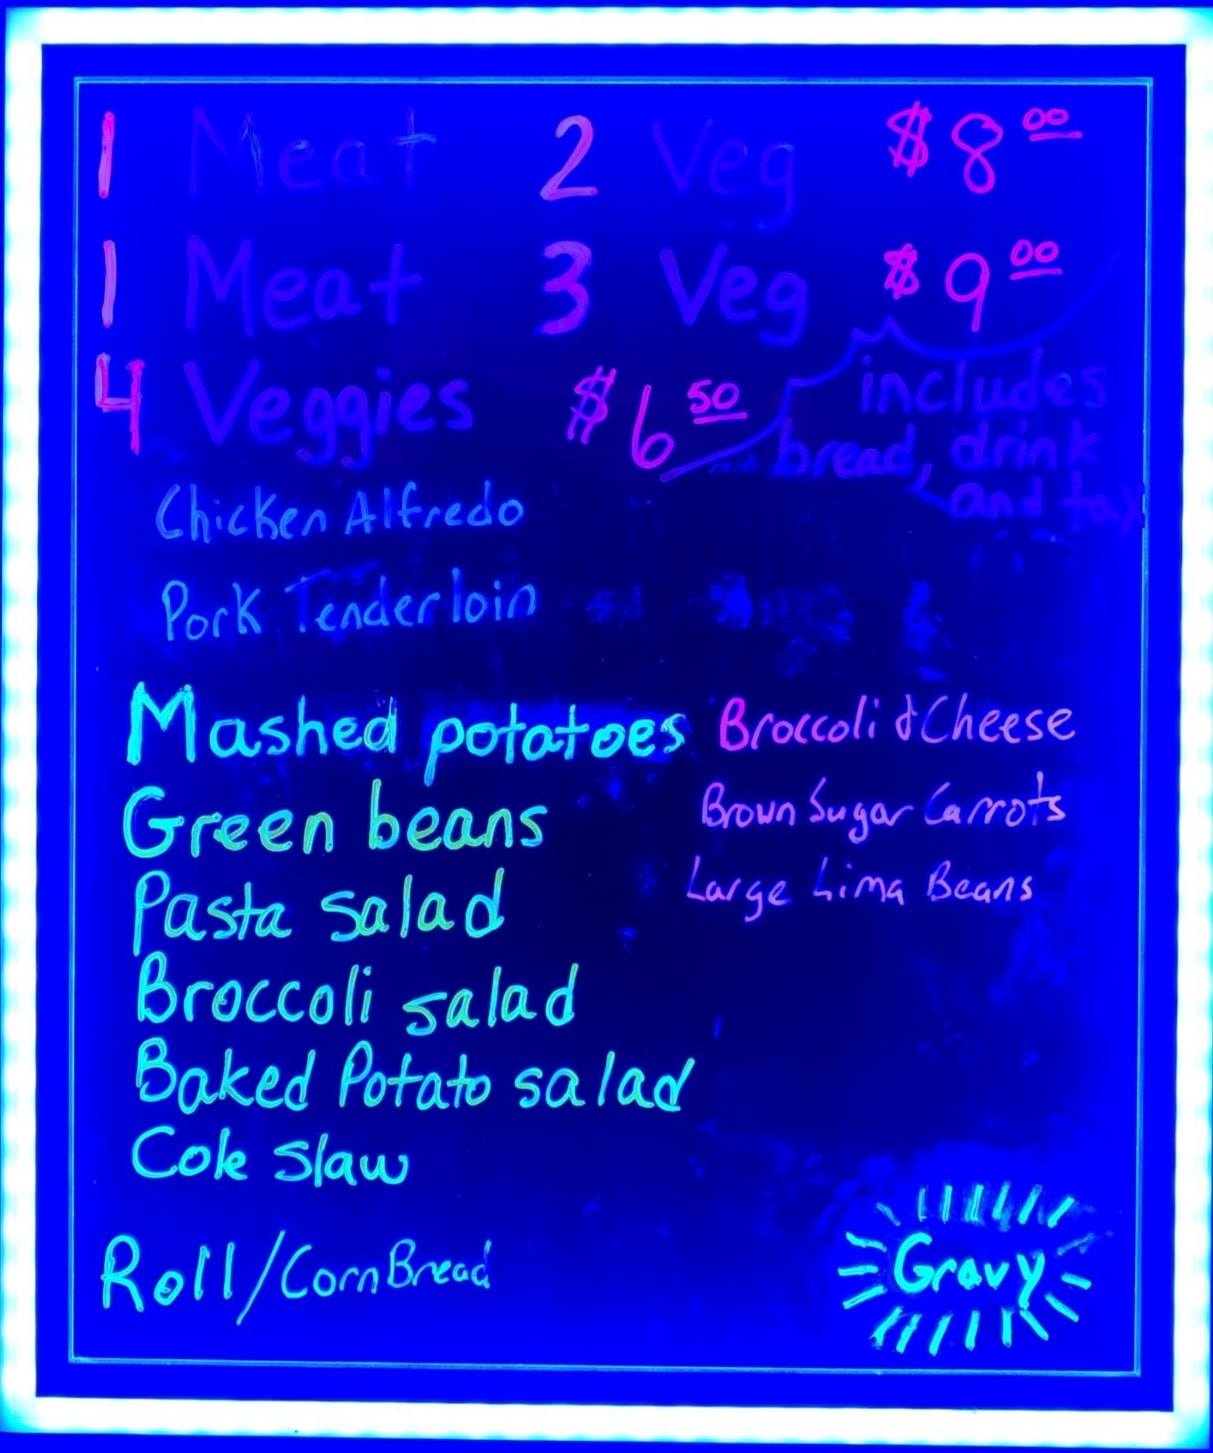 1 Meat 2 Veg $8 00
1 Meat 3 Veg $9 00
4 Veggies $6 50
includes
bread, drink
and tax
Chicken Alfredo
Pork Tenderloin
Mashed potatoes
Green beans
Pasta salad
Broccoli salad
Baked Potato salad
Cole Slaw
Broccoli & Cheese
Brown Sugar Carrots
Large Lima Beans
Roll/Corn Bread
Gravy